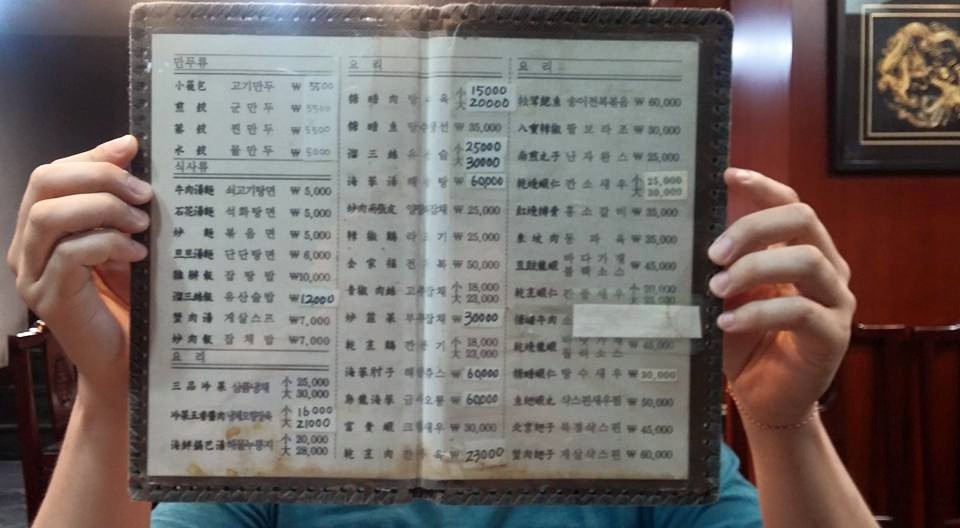 만두류
小籠包 고기만두 ₩ 5500
煎餃 군만두 ₩ 5500
蒸餃 찐만두 ₩ 5500
水餃 물만두 ₩ 5000
식사류
牛肉湯麵 쇠고기탕면 ₩ 5,000
石花湯麵 석화탕면 ₩ 5,000
炒麵 볶음면 ₩ 5,000
단단탕면 ₩ 6,000
雜拌飯 잡탕밥 ₩10,000
溜三絲飯 유산슬밥 ₩12000
蟹肉湯 게살스프 ₩7,000
炒肉飯 잡채밥 ₩7,000
요리
三品冷菜 삼품냉채 小 25,000 大 30,000
冷菜五香醬肉 냉채오향장육 小 16000 大 21000
海鮮鍋巴湯 해물누룽지 小 20,000 大 28,000
요리
糖醋肉 탕수육 小 15000 大 20000
糖醋魚 탕수생선 ₩ 35,000
溜三絲 유산슬 小 25000 大 30000
海蔘湯 해삼탕 ₩ 60,000
炒肉兩張皮 양장피잡채 ₩ 25,000
辣椒鷄 라조기 ₩ 25,000
全家福 전가복 ₩ 50,000
靑椒肉絲 고추잡채 小 18,000 大 23,000
炒韮菜 부추잡채 ₩30000
乾烹鷄 깐풍기 小 18,000 大 23,000
海蔘肘子 해삼쥬스 ₩ 60,000
烏龍海蔘 금사오룡 ₩ 60000
富貴蝦 크림새우 ₩ 30,000
乾烹肉 깐풍육 ₩ 23000
松茸鮑魚 송이전복볶음 ₩ 60,000
八寶辣椒 팔보라조 ₩ 30,000
南煎丸子 난자완스 ₩ 25,000
乾燒蝦仁 깐소새우 小 25,000 大 30,000
紅燒排骨 홍소갈비 ₩ 35,000
東坡肉 동파육 ₩ 35,000
豆豉龍蝦 바다가재 블랙소스 ₩ 45,000
乾烹蝦仁 깐풍새우 小 20,000
牛肉 소
乾燒龍蝦 바닷가재 칠리소스 ₩ 45,000
糖醋蝦仁 탕수새우 ₩ 30,000
魚翅蝦丸 삭스핀새우찜 ₩ 50,000
北京翅子 북경삭스핀 ₩ 45,000
蟹肉翅子 게살삭스핀 ₩ 60,000